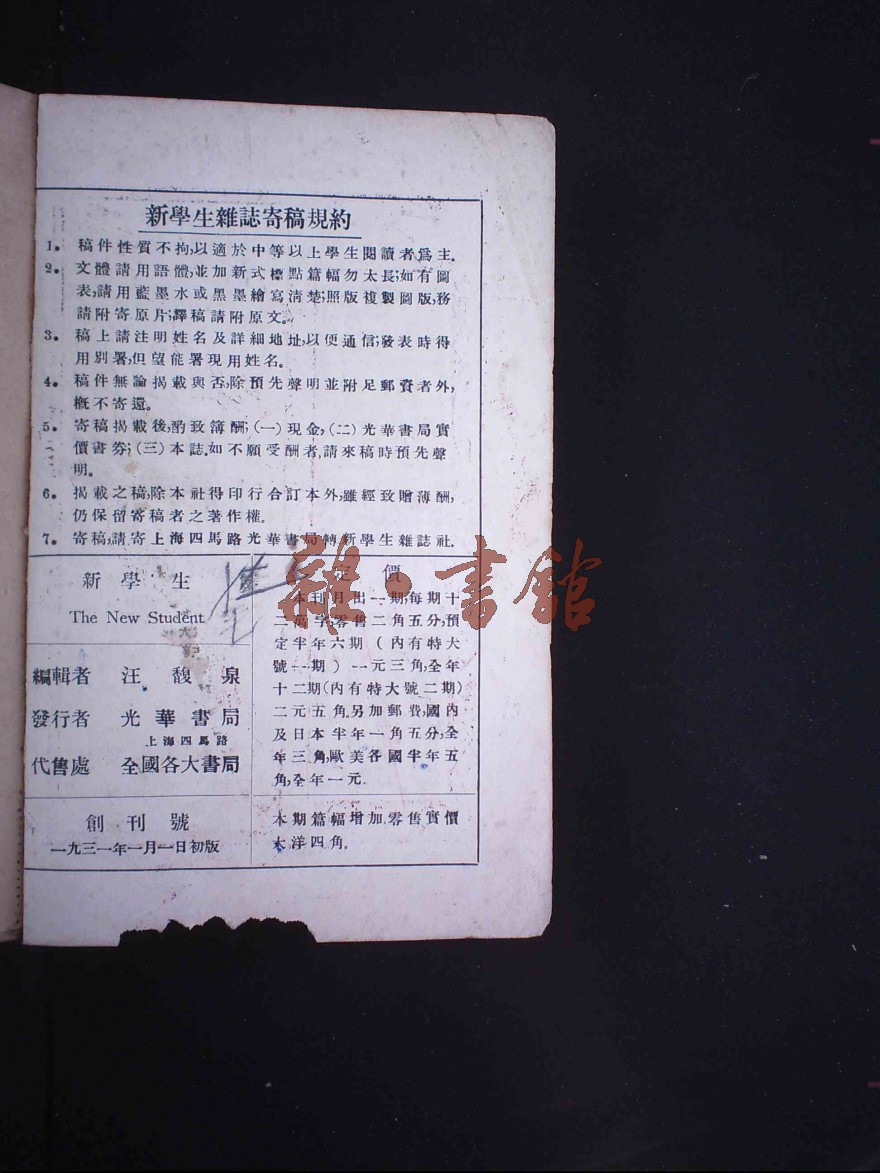 新學生雜誌寄稿規約
1. 稿件性質不拘,以適於中等以上學生閱讀者爲主.
2. 文體請用語體,並加新式標點篇幅勿太長;如有圖
表,請用藍墨水或黑墨繪寫清楚;照版複製圖版,務
請附寄原片;譯稿請附原文.
3. 稿上請注明姓名及詳細地址,以便通信;發表時得
用別署,但望能署現用姓名.
4. 稿件無論揭載與否,除預先聲明並附足郵資者外,
概不寄還.
5. 寄稿揭載後,酌致簿酬;(一)現金,(二)光華書局實
價書券;(三)本誌.如不願受酬者,請來稿時預先聲
明.
6. 揭載之稿,除本社得印行合訂本外,雖經致贈薄酬,
仍保留寄稿者之著作權.
7. 寄稿,請寄上海四馬路光華書局轉新學生雜誌社.
新學生
The New Student
編輯者 汪馥泉
發行者 光華書局
上海四馬路
代售處 全國各大書局
創刊號
一九三一年一月一日初版
定價
本刊月出一期,每期十
二萬字,零售二角五分,預
定半年六期(內有特大
號一期)一元三角,全年
十二期(內有特大號二期)
二元五角.另加郵費,國內
及日本半年一角五分,全
年三角,歐美各國半年五
角,全年一元.
本期篇幅增加.零售實價
大洋四角.
雜·書館